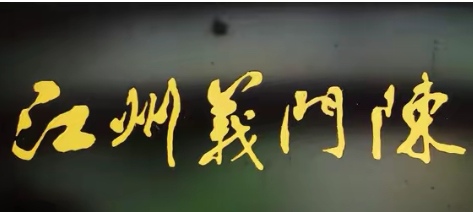 江州義門陳